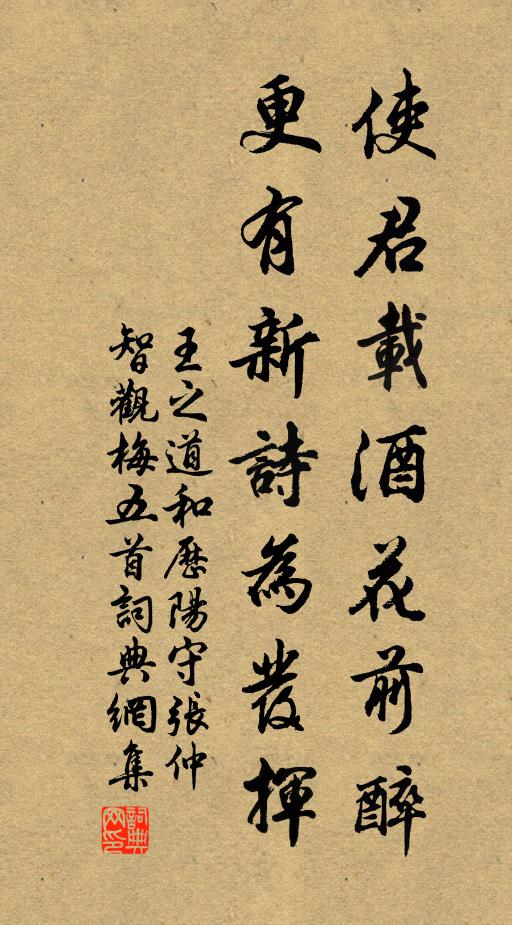 使君載酒花前醉
更有新詩為發揮
王之道和歷陽守張仲
智觀梅五首詞典網集
詞典
网印